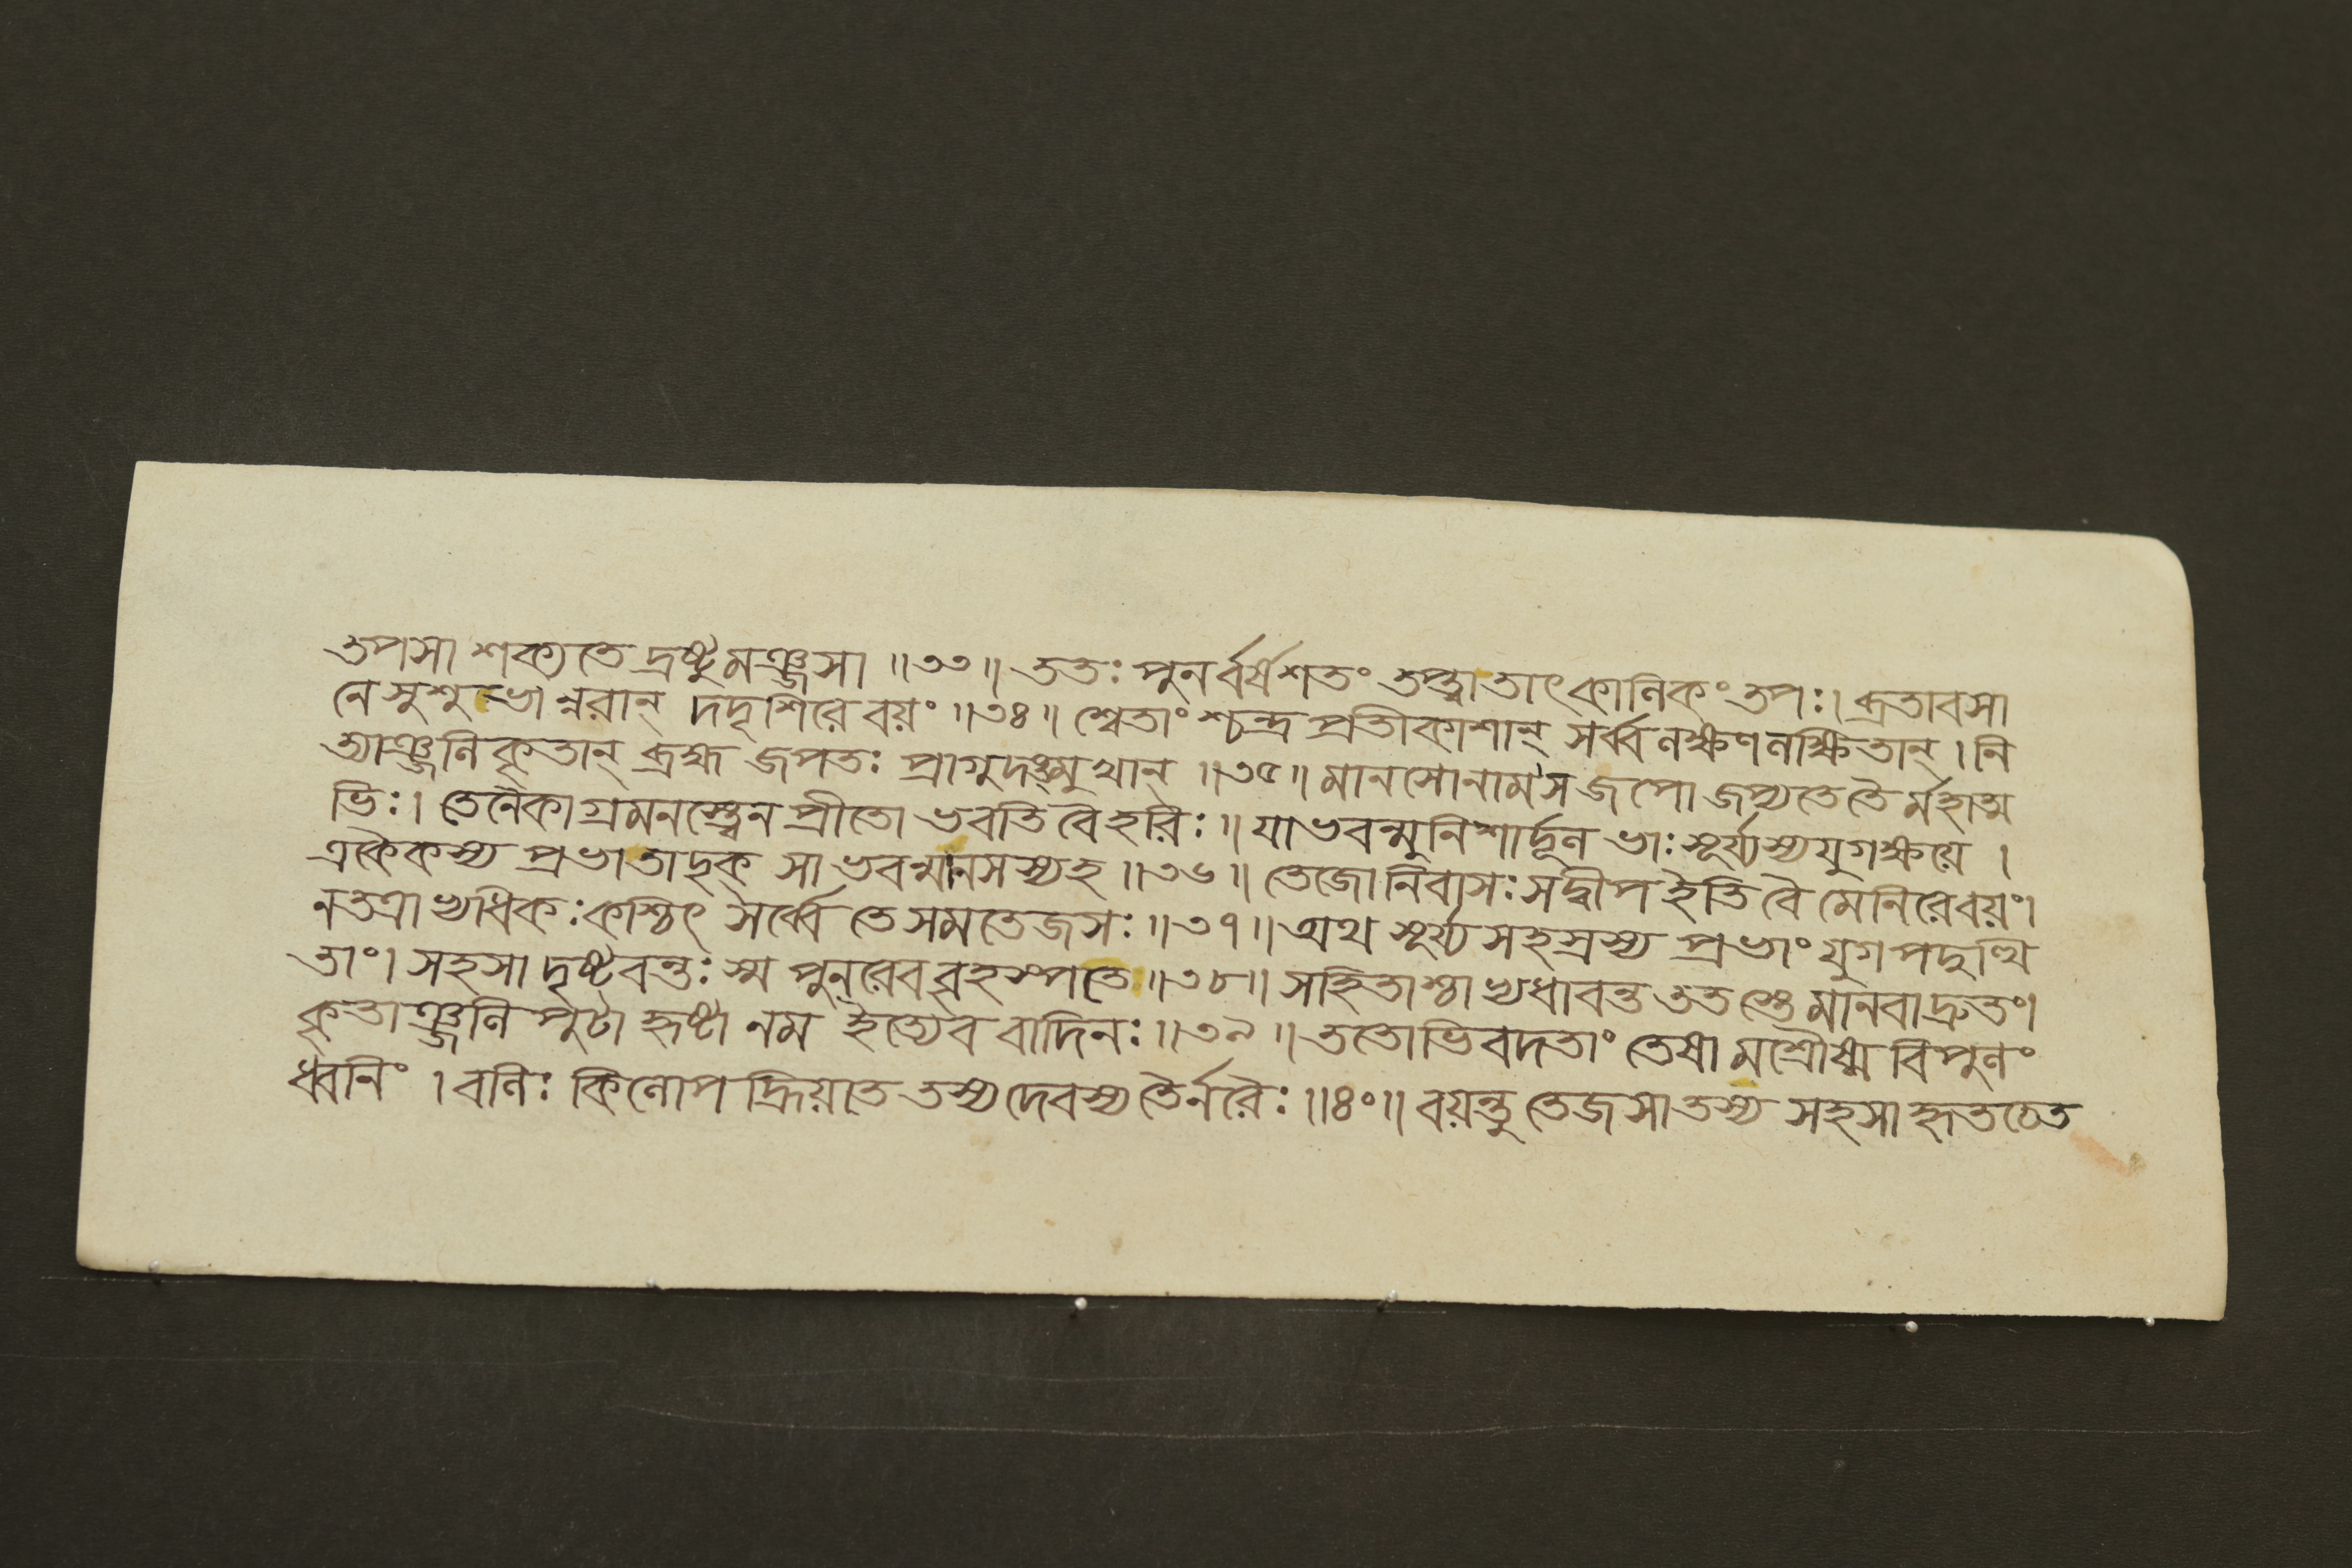 তপসা শক্যতে দ্রষ্টুমঞ্জসা ॥৩৩॥ ততঃ পুনর্ব্বর্ষশতং তপ্ত্বা তাৎকালিকং তপঃ। ব্রতাবসা
নে সুশুভান্নরান্ দদৃশিরে বয়ং ॥৩৪॥ শ্বেতাংশ্চন্দ্র প্রতীকাশান্ সর্ব্বলক্ষণলক্ষিতান্। নি
ত্যাঞ্জলিকৃতান্ ব্রহ্ম জপতঃ প্রাগুদঙ্মুখান্ ॥৩৫॥ মানসোনাম স জপো জপ্যতে তৈর্ম্মহাত্ম
ভিঃ। তেনৈকাগ্রমনস্ত্বেন প্রীতো ভবতি বৈ হরিঃ॥ যাভবন্মুনিশার্দ্দূল ভাঃ সূর্য্যস্য যুগক্ষয়ে ।
একৈকস্য প্রভা তাদৃক্ সা ভবন্মানসস্যহ ॥৩৬॥ তেজোনিবাসঃ সদ্বীপ ইতি বৈ মেনিরে বয়ং।
নতত্রাভ্যধিকঃ কশ্চিৎ সর্ব্বে তে সমতেজসঃ ॥৩৭॥ অথ সূর্য্যসহস্রস্য প্রভাং যুগপদুত্থি
তাং। সহসা দৃষ্টবন্তঃ স্ম পুনরেব বৃহস্পতে ॥৩৮॥ সহিতাশ্চাভ্যধাবন্ত ততস্তে মানবাদ্রুতং।
কৃতাঞ্জলিপুটা হৃষ্টা নম ইত্যেব বাদিনঃ ॥৩৯॥ ততোভিবদতাং তেষামশ্রৌষ্ম বিপুলং
ধ্বনিং । বলিঃ কিলোপহ্রিয়াত তস্য দেবস্য তৈর্নরৈঃ ॥৪০॥ বয়ন্তু তেজসা তস্য সহসা হৃতচেত